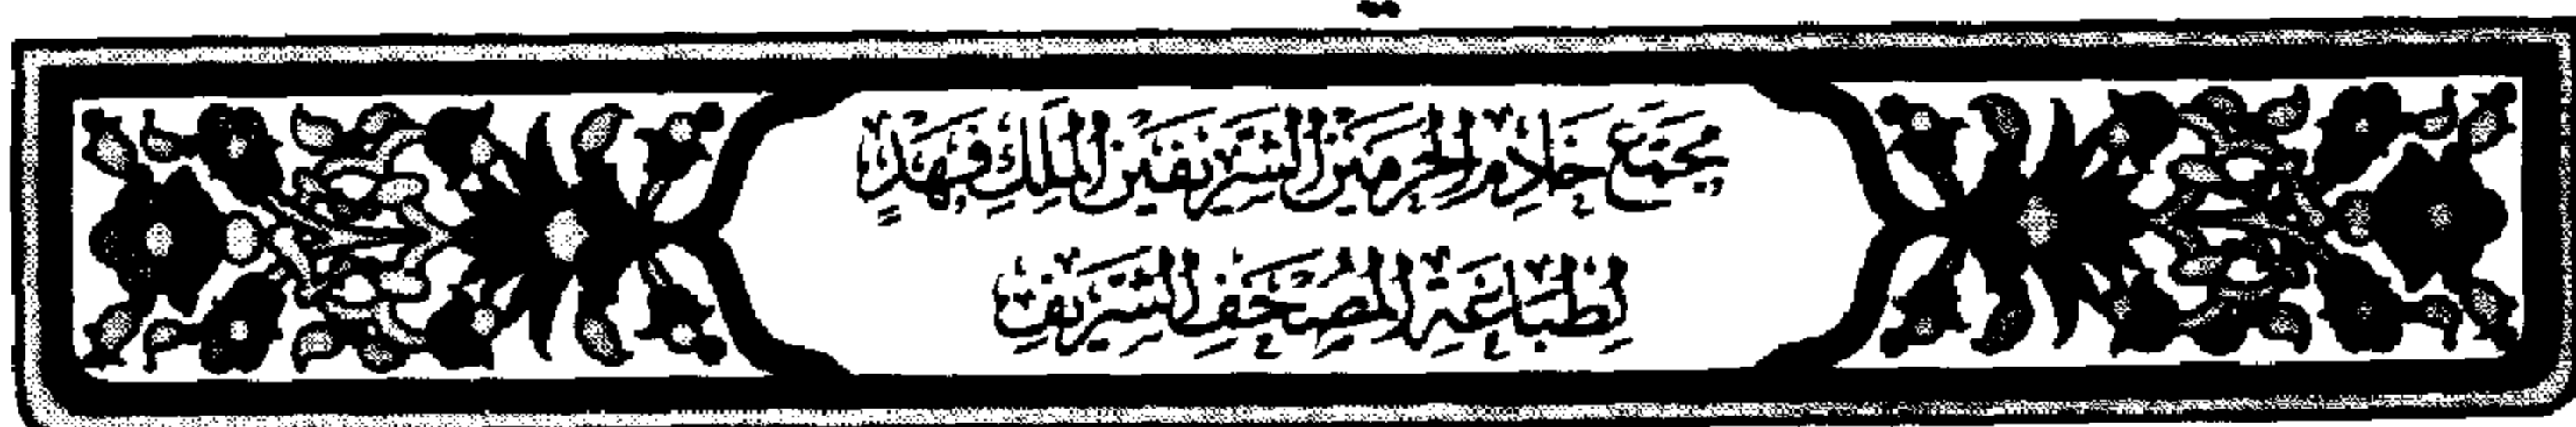 مُجَمَّع خَادِم الحَرَمَيْن الشَّرِيفَيْن المَلِك فَهَد
لِطِبَاعَةِ المُصْحَفِ الشَّرِيف